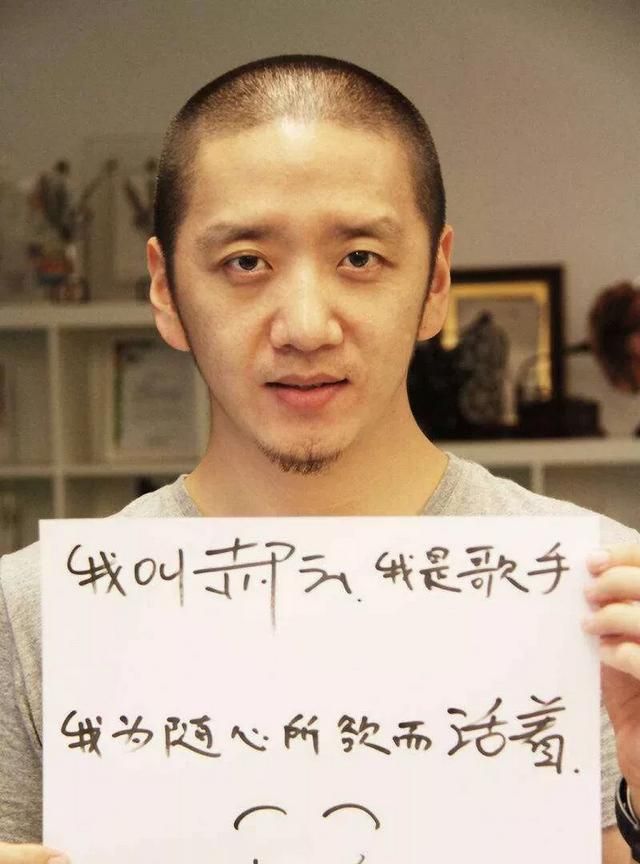 我叫郝云.我是歌手
我为随心所欲而活着.